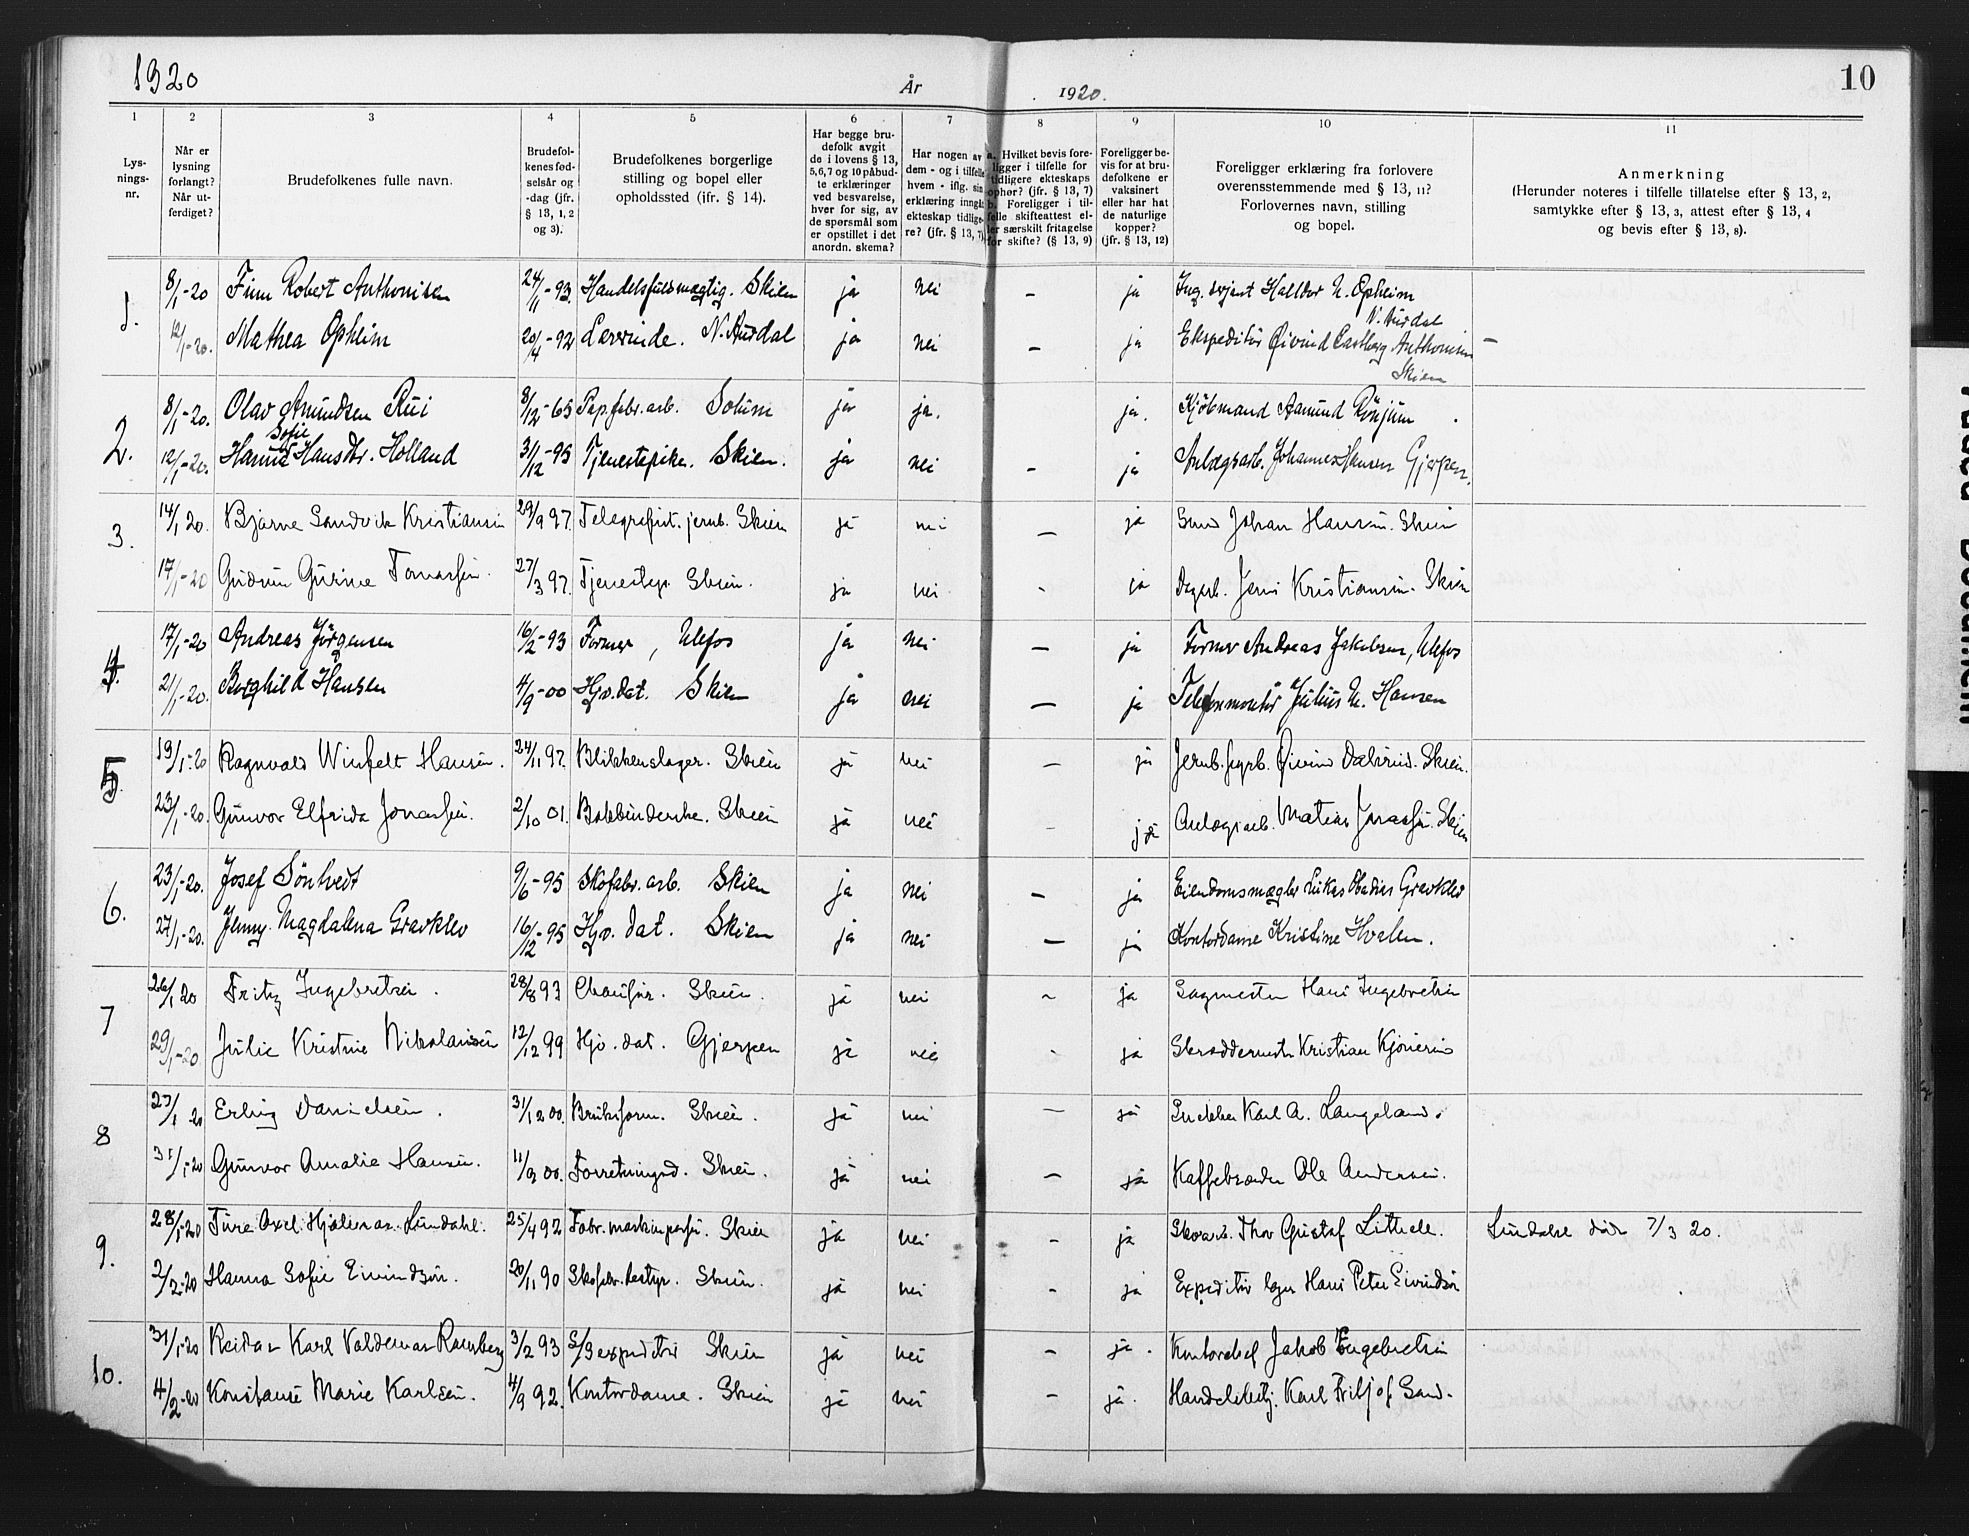 1920
År
1920.
10
1 2 3 4 5 6 7 8 9 10 11
Lys-
nings-
nr.
Når er
lysning
forlangt?
Når ut-
ferdiget?
Brudefolkenes fulle navn.
Brudefol-
kenes fød-
selsår og
-dag (jfr.
§ 13, 1, 2
og 3).
Brudefolkenes borgerlige
stilling og bopel eller
opholdssted (jfr. § 14).
Har begge bru-
defolk avgit
de i lovens § 13,
5,6,7 og 10 påbud-
te erklæringer
ved besvarelse,
hver for sig, av
de spørsmål som
er opstillet i det
anordn. skema?
Har nogen av
dem - og i tilfelle
hvem - iflg. sin
erklæring inngåt
ekteskap tidlige-
re? (jfr. § 13, 7)
a. Hvilket bevis fore-
ligger i tilfelle for
tidligere ekteskaps
ophør? (jfr. § 13, 7)
b. Foreligger i til-
felle skifteattest el-
ler særskilt fritagelse
for skifte? (§ 13, 9)
Foreligger be-
vis for at bru-
defolkene er
vaksinert
eller har hat
de naturlige
kopper?
(jfr. § 13, 12)
Foreligger erklæring fra forlovere
overensstemmende med § 13, 11?
Forlovernes navn, stilling
og bopel.
Anmerkning
(Herunder noteres i tilfelle tillatelse efter § 13, 2,
samtykke efter § 13, 3, attest efter § 13, 4
og bevis efter § 13, 8).
1. 8/1-20 Finn Robert Anthonisen 24/1-93. Handelsfuldmægtig. Skien ja nei - ja Halldor N. Opheim
N. Aurdal
12/1-20. Mathea Opheim 20/4-92 Lærerinde. N. Aurdal ja nei - ja Ekspeditør Øivind Castberg Anthonisen -
Skien
2. 8/1-20. Olav Amundsen Rui 8/12-65 Pap.fabr.arb. Solum ja ja. ja. Kjøbmand Aamund Rønjum
Sofie
12/1-20. Hanna Hansdtr. Holland 31/12-95 Tjenestepike. Skien. ja nei - ja Anlægsarb. Johannes Hansen Gjerpen.
3. 14/1 20. Bjarne Sandvik Kristiansen 29/9 97. Telegrafist. jernb. Skien ja nei - ja Johan Hansen. Skien
17/1-20 Gudrun Gurine Tomassen. 27/3 97. Skien. ja nei - ja Jens Kristiansen. Skien
4. 17/1-20 Andreas Jørgensen 16/2-93 Former, Ulefos ja nei - ja Former Andreas Jakobsen, Ulefos
21/1-20. Borghild Hansen 4/9-00 Hjv. dat. Skien ja nei - ja Telefonmontør Julius N. Hansen
5 19/1-20 Ragnvald Winfelt Hansen. 24/11 97. Blikkenslager. Skien ja nei - ja Øivind Dalsrud. Skien.
23/1-20. Gunvor Elfrida Jonassen. 2/10 01. Bokbinderske. Skien ja nei - ja Anlægsarb. Matias Jonassen. Skien
6. 23/1-20. Josef Sönhvedt 9/6-95 Skofabr. arb. Skien ja nei - ja Eiendomsmægler Lukas Obadias Gravklev
27/1-20. Jenny Magdalena Gravklev 16/12-95 Hjv. dat. Skien ja nei - ja Kontordame Kristine Hvalen.
7 26/1 20 Fritz Ingebretsen. 28/8 93 Chauffør. Skien. ja nei - ja Sagmester Hans Ingebretsen
29/1-20 Julie Kristine Nikolaisen 12/12 99 Hjv. dat. Gjerpen ja nei - ja Skræddermester Kristian
8 27/1 20 Erling Danielsen. 31/12 00. Skien. ja nei - ja Snekker Karl A. Langeland.
31/1-20 Gunvor Amalie Hansen. 11/9 00. Forretningsd. Skien. ja nei - ja Kaffebrænder Ole Andersen.
9. 28/1-20 Ture Axel Hjalmar Lundahl. 25/4 92 Skien ja nei - ja Thor Gustaf Lithell. Lundahl død 7/3 20.
2/2-20 Hanna Sofie Eivindson. 20/11 90 Skofabr. bestyr. Skien. ja nei - ja Expeditør Hans Peter Eivindson
10. 31/1-20 Reidar Karl Valdemar Ramberg 3/2 93 S/B expeditør Skien ja nei - ja. Jakob Engebretsen
4/2-20 Konstanse Marie Karlsen. 4/9 92. Kontordame. Skien ja nei - ja. Karl Fritjof Sand.